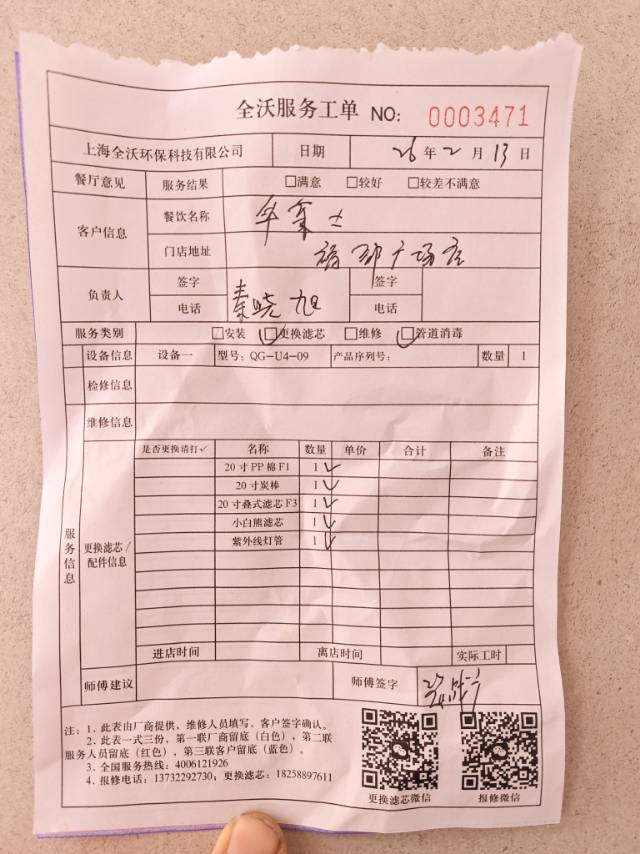 全沃服务工单 NO: 0003471
上海全沃环保科技有限公司 日期 26年2月13日
餐厅意见 服务结果 □满意 □较好 □较差不满意
客户信息 餐饮名称 华莱士
门店地址 广场店
负责人 签字 秦晓旭 签字
电话 电话
服务类别 □安装 □更换滤芯 □维修 □管道消毒
设备信息 设备一 型号: QG-U4-09 产品序列号: 数量 1
检修信息
维修信息
服务信息
更换滤芯/配件信息
是否更换请打✓ 名称 数量 单价 合计 备注
20寸PP棉F1 1 ✓
20寸炭棒 1 ✓
20寸叠式滤芯F3 1 ✓
小白熊滤芯 1 ✓
紫外线灯管 1 ✓
进店时间 离店时间 实际工时
师傅建议 师傅签字
注: 1、此表由厂商提供、维修人员填写、客户签字确认。
2、此表一式三份、第一联厂商留底(白色)、第二联
服务人员留底(红色)、第三联客户留底(蓝色)。
3、全国服务热线: 4006121926
4、报修电话: 13732292730; 更换滤芯: 18258897611
更换滤芯微信 报修微信